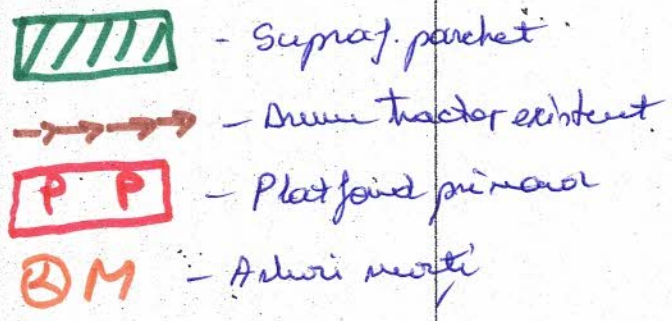 - Supraf. parchet
- Drum tractor existent
P P - Platformă primară
M - Arbori morți